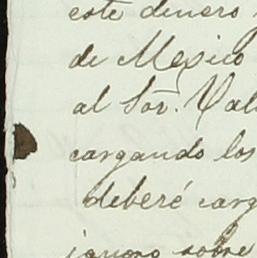 este dinero
de Mexico
al Sor. Val
cargando los
deberé carg
sobre